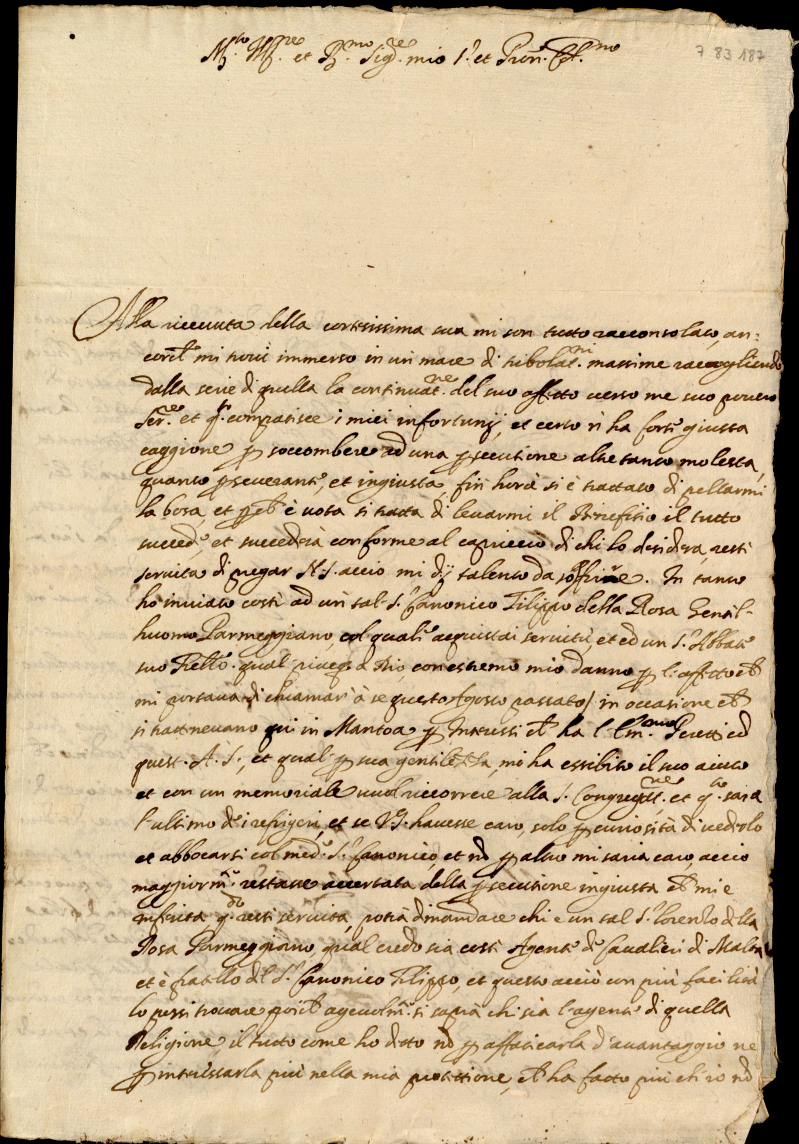 M.to Ill.re et R.mo Sig.re mio S.r et Pron. Col.mo
7 83 187
Alla riceuuta della cortesissima sua mi son tutto racconsolato, an=
corche mi troui immerso in un mare di tribolat.ni massime raccogliendo
dalla serie di quella la continuat.ne del suo affetto uerso me suo pouero
Ser.re et compatisce i miei infortunij, et certo ui ha forte giusta
caggione p soccombere ad una psecutione altretanto molesta,
quanto pseuerante, et ingiusta, fin hora si è trattato di pellarmi
la borsa, et pche è uota si tratta di leuarmi il Benefitio il tutto
succede, et succederà conforme al capriccio di chi lo desidera, resti
seruita di pregar N.S. acciò mi dij talento da soffrire. In tanto
ho inuiato costì ad un tal S.r Canonico Filippo della Rosa Gentil-
huomo Parmeggiano, col quale acquistai seruitù, et ad un S.r Abbate
suo Fratello qual piacque a Dio, con estremo mio danno p l'affetto che
mi portaua di chiamar à se questo Agosto passato / in occasione che
si tratteneuano qui in Mantoa p Interessi che ha l'Em.mo Peretti con
quest'A.S., et qual p sua gentilezza, mi ha essibito il suo aiuto
et con un memoriale uuol ricorrere alla S. Congregat.ne et q.to sarà
l'ultimo de i refrigeri, et se V.S. hauesse caro, solo p curiosità di uederlo
et abboccarsi col med.o S.r Canonico, et nõ p altro mi saria caro, acciò
maggiorm.te restasse accertata della psecutione ingiusta che mi è
inferita resti seruita, potrà dimandare chi è un tal S.r Lorenzo della
Rosa Parmeggiano, qual credo sia costì Agente de Caualieri di Malta
et è fratello del S.r Canonico Filippo, et questo acciò con più facilità
lo possi trouare poiche ageuolm.te si saprà chi sia l'agente di quella
Religione, il tutto come ho detto nõ p affaticarla d'auantaggio ne
p interessarla più nella mia protettione, che ha fatto più che io nõ